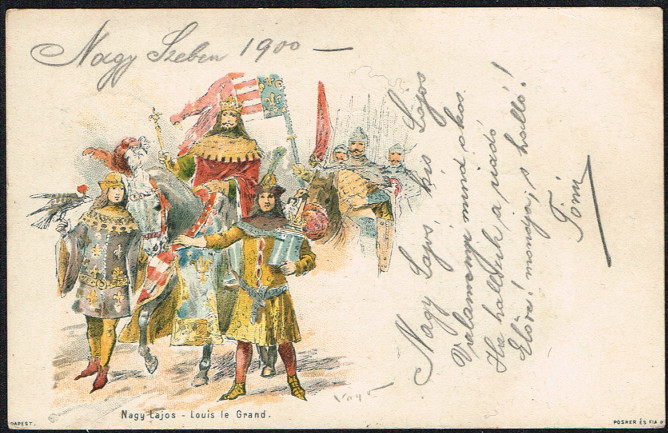 Nagy Szeben 1900 —
Nagy Lajos, kis Lajos
Valamennyi mind okos.
Ha halljuk a riadó
Előre! mondja, s halló!
Tóni
Nagy Lajos - Louis le Grand.
DAPEST.
POSNER ÉS FIA